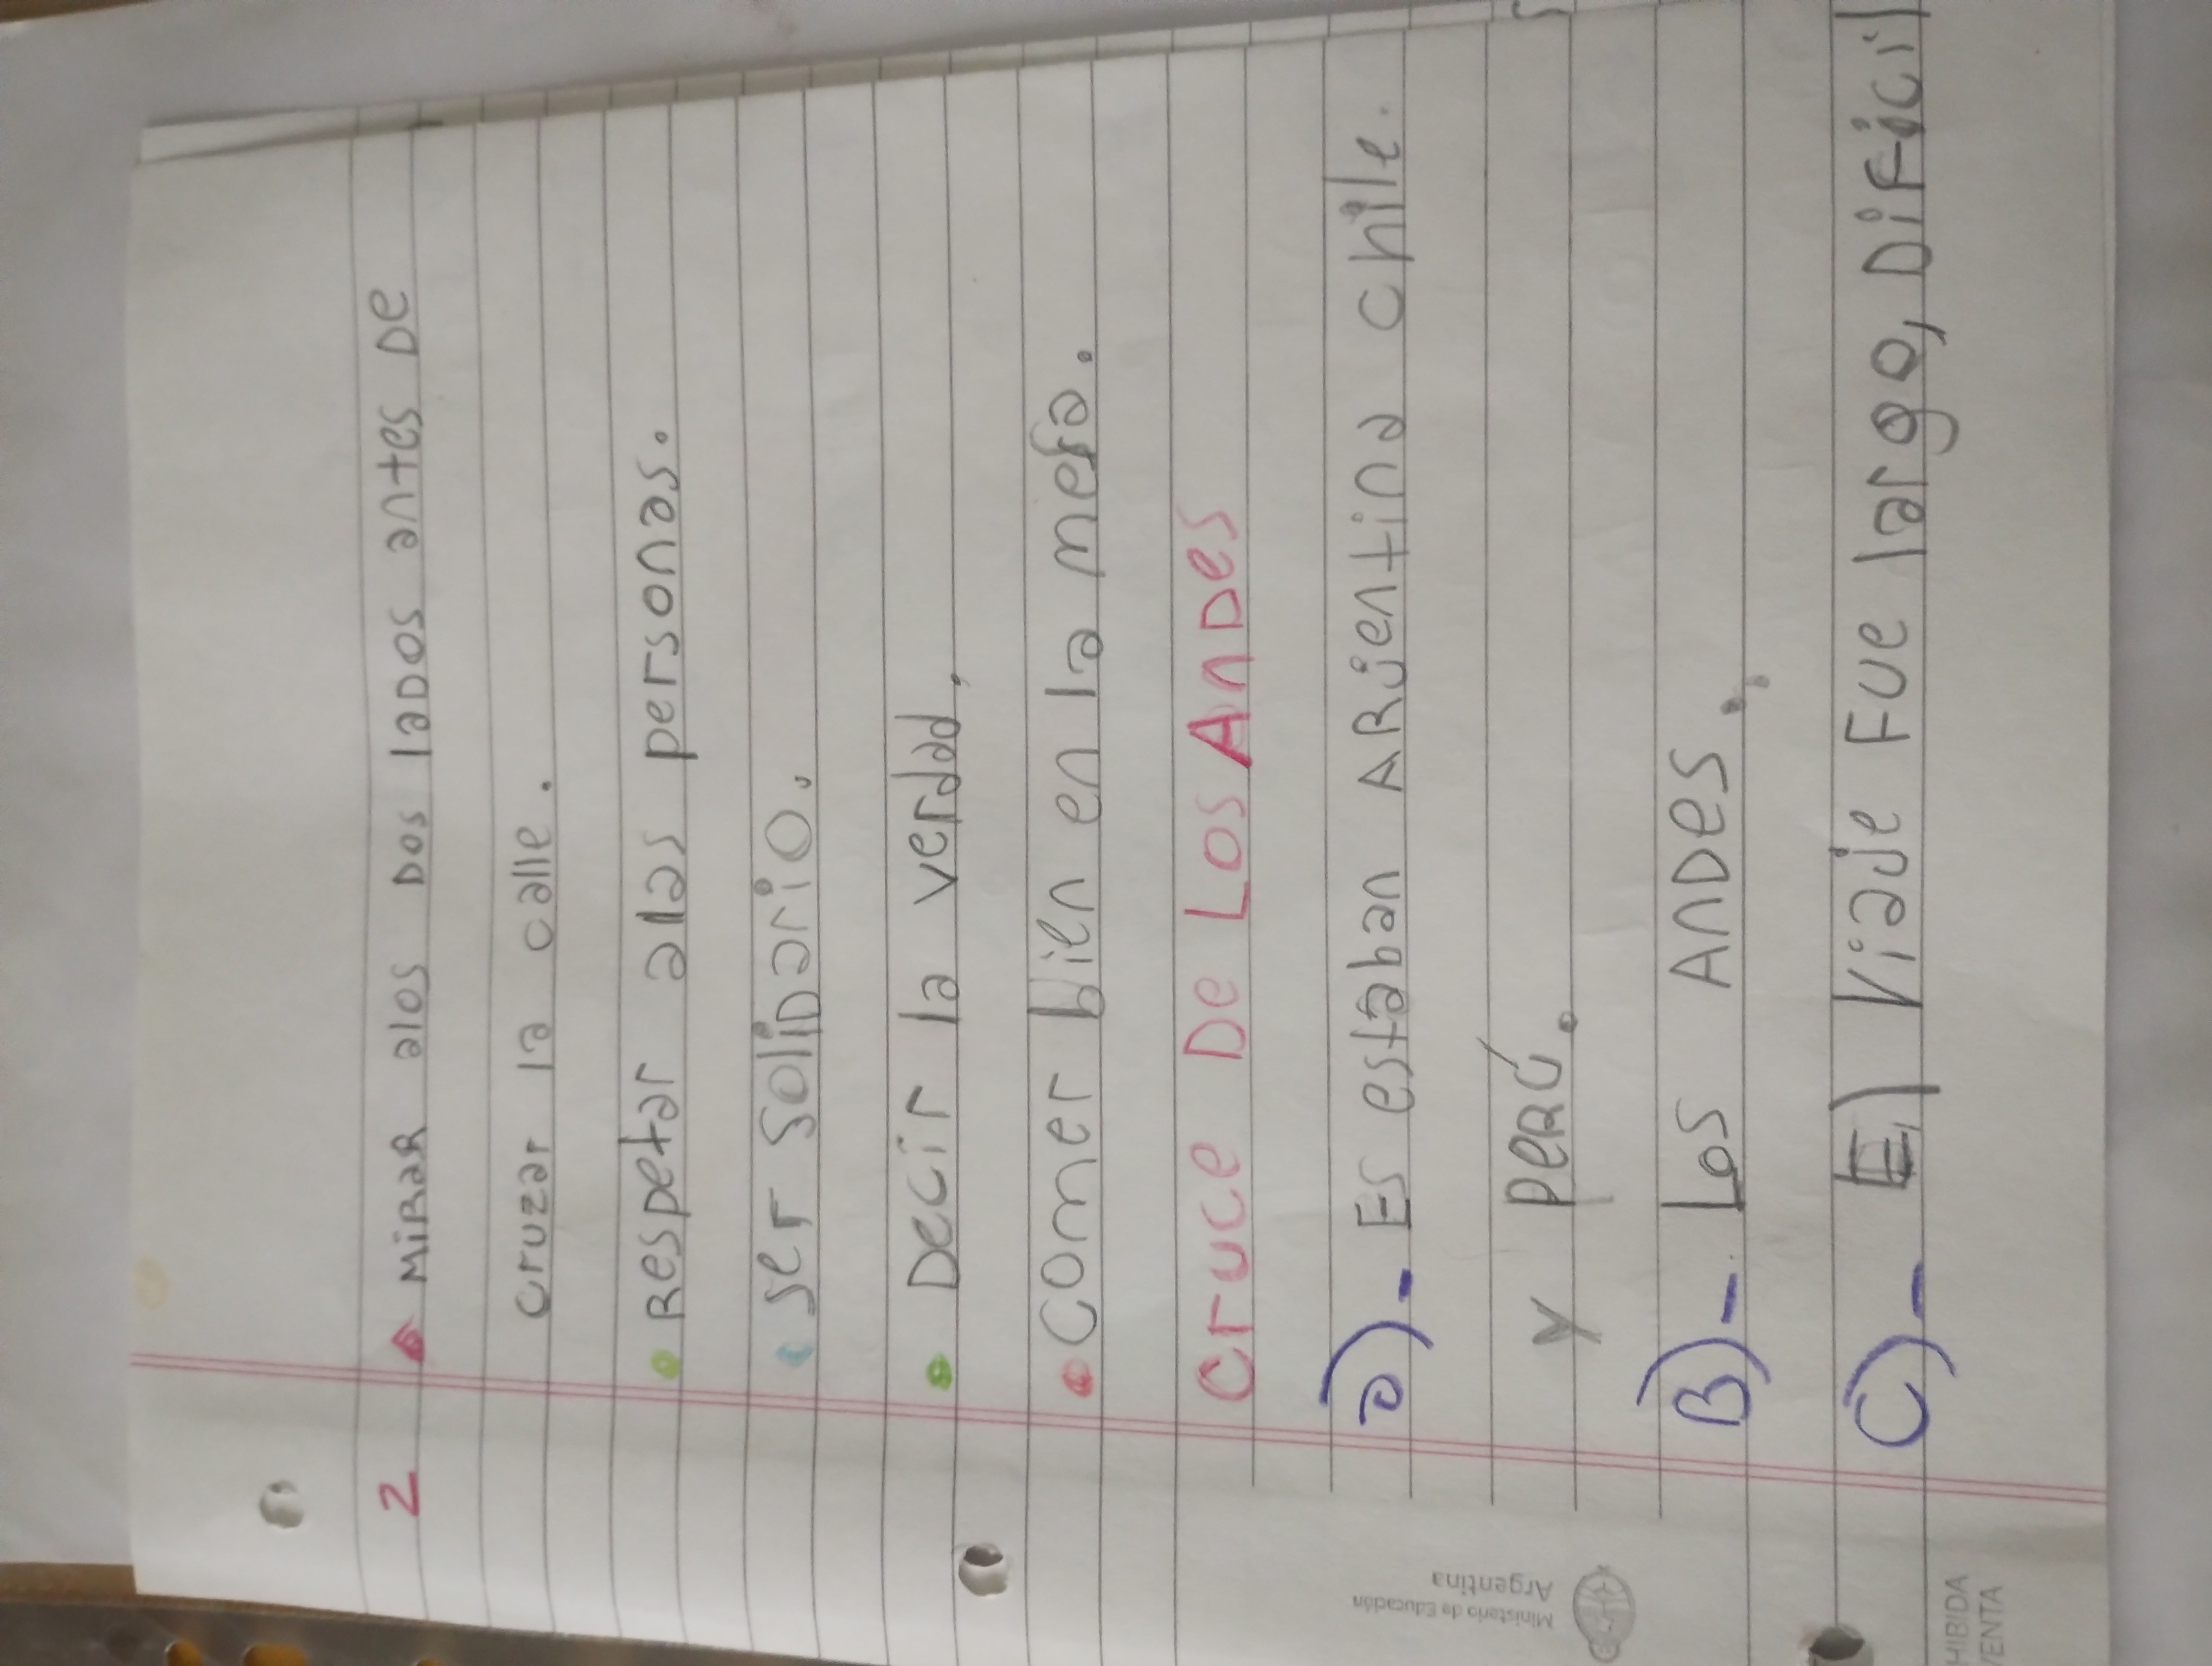 2 MiRaR alos Dos laDos antes De
cruzar la calle.
Respetar alas personas.
ser soliDario.
Decir la verdad,
comer bien en la mesa.
Cruce De Los AnDes
a)- Es estaban ARjentina chile.
y PeRÚ.
B)- Los AnDes.
C)- El Viaje Fue largo, DiFícil
Ministerio de Educación
Argentina
HIBIDA
VENTA